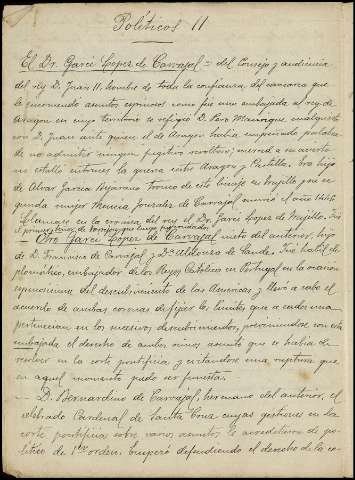 Políticos 11
El Dr. Garci Lopez de Carvajal = del Consejo y audiencia
del rey D. Juan II, hombre de toda la confianza del monarca que
le encomendó asuntos espinosos como fue una embajada al rey de
Aragon en cuyo territorio se refugió D. Pero Manrique enemistado
con D. Juan ante quien el de Aragon habia empeñado palabra
de no admitir ningun fugitivo revoltoso; merced a su acierto
no estalló entonces la guerra entre Aragon y Castilla. Era hijo
de Alvar Garcia Bejarano tronco de este linaje en Trujillo y de su
segunda mujer Mencia Gonzalez de Carvajal murió el año 1446
llamase en la cronica del rey el Dr. Garci Lopez de Trujillo. Fué
el primer señor de Torrejon que luego
Otro Garci Lopez de Carvajal nieto del anterior, hijo
de D. Francisco de Carvajal y Dª Aldonza de Sande. Fué habil di-
plomático, embajador de los Reyes Católicos en Portugal en la ocasion
del descubrimiento de las Americas y llevó a cabo el
acuerdo de ambas coronas de fijar los limites que a cada una
pertenecian en los nuevos descubrimientos, con esta
embajada el derecho de ambos reinos asunto que se habia de
resolver en la corte pontificia y evitandose una ruptura que
en aquel momento pudo ser funesta.
— D. Bernardino de Carvajal, hermano del anterior, el
celebrado Cardenal de Santa Cruz cuyas gestiones en la
corte pontificia sobre varios asuntos, le acreditaron de po-
litico de 1er orden. Empezó defendiendo el derecho de la co-